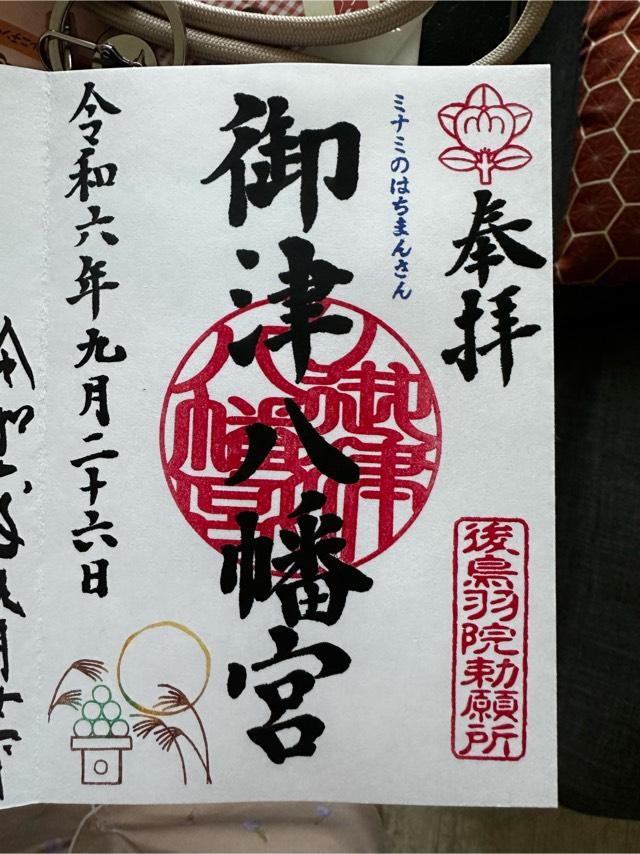 奉拝
後鳥羽院勅願所
ミナミのはちまんさん
御津八幡宮
令和六年九月二十六日